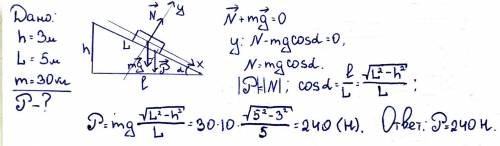 Дано:
h = 3м
L = 5м
m = 30 кг
P - ?
h
L
l
N
y
x
mg
P
α
N + mg = 0
y: N - mg cosα = 0,
N = mg cosα.
|P| = |N|; cosα = l/L = √(L² - h²)/L;
P = mg √(L² - h²)/L = 30·10·√(5² - 3²)/5 = 240 (Н). Ответ: P = 240 Н.